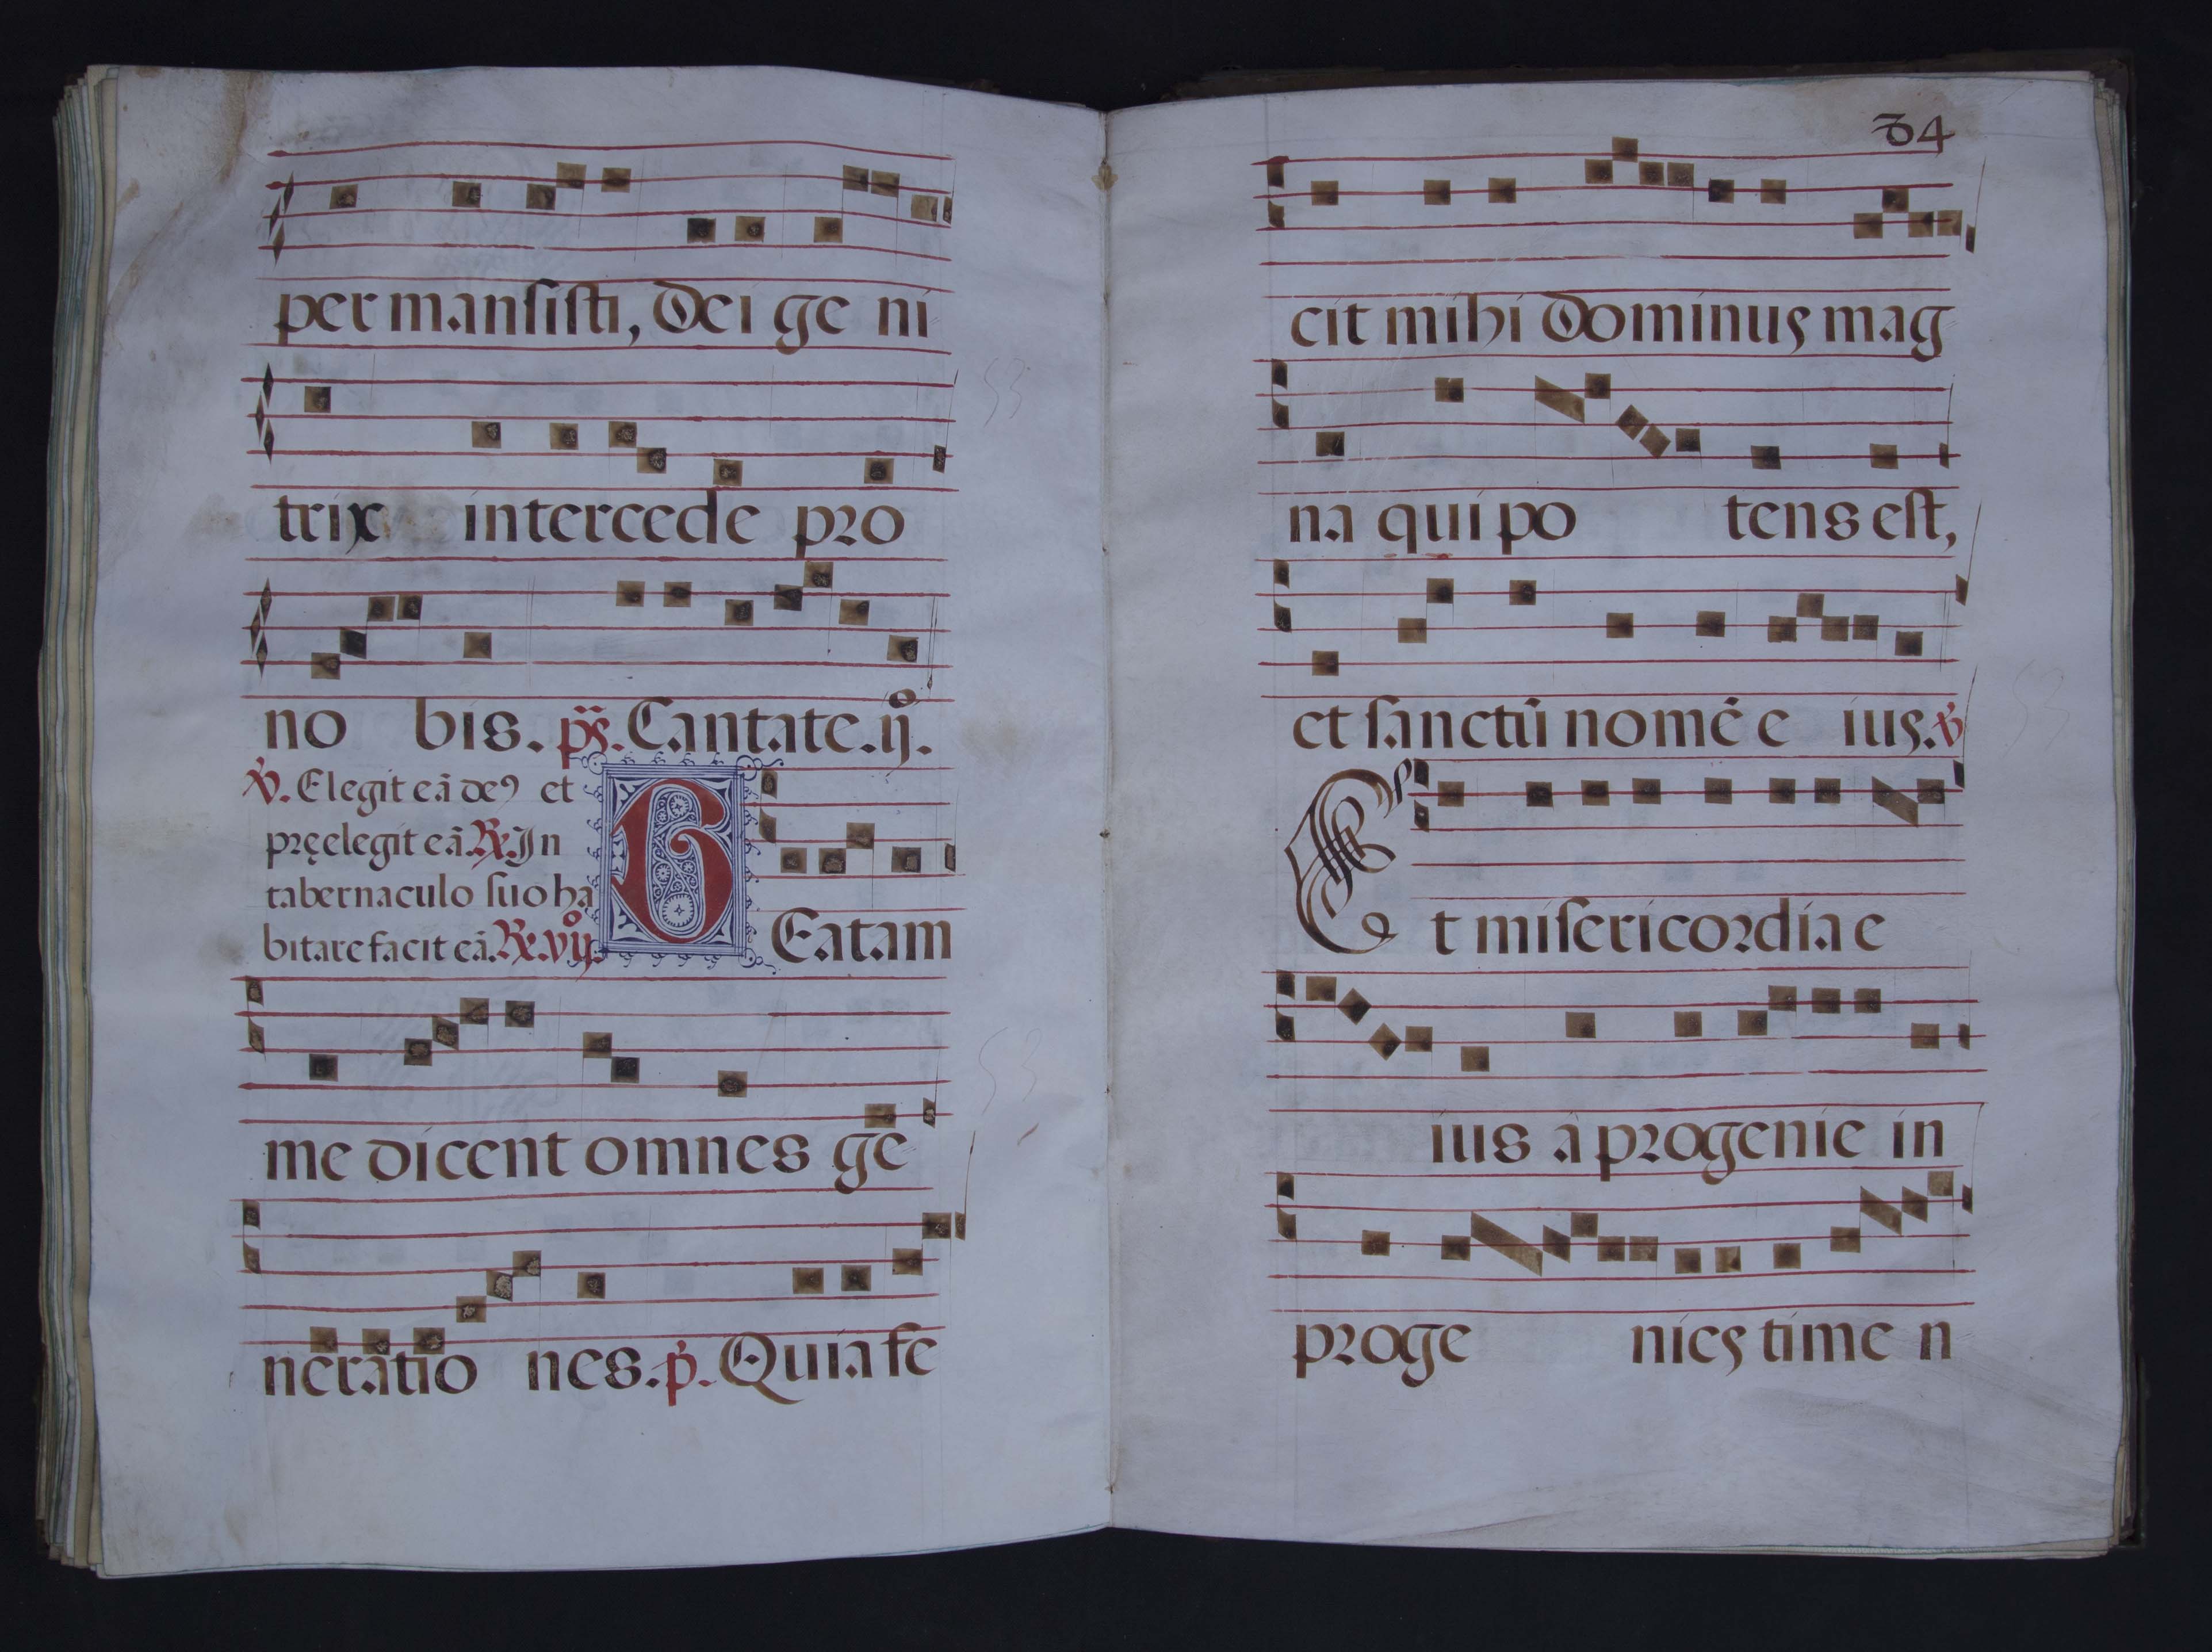 permansisti, Dei ge ni
trix intercede pro
no bis. ps. Cantate. ij.
℣. Elegit eā de9 et
pręelegit eā. ℟. In
tabernaculo suo ha
bitare facit eā. ℟. viij.
BEatam
me dicent omnes ge
neratio nes. p̕. Quia fe
34
cit mihi Dominus mag
na qui po tens est,
et sanctū nomē e ius. ℣
Et misericordia e
ius à progenie in
proge nies time n
53
53
53